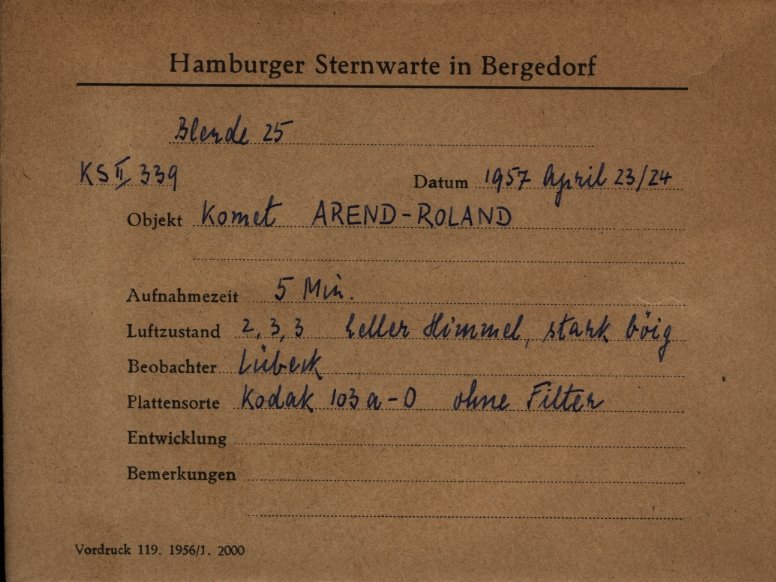 Hamburger Sternwarte in Bergedorf
Blende 25
KS II 339 Datum 1957 April 23/24
Objekt Komet AREND-ROLAND
Aufnahmezeit 5 Min.
Luftzustand 2, 3, 3 heller Himmel, stark böig
Beobachter Lübeck
Plattensorte Kodak 103 a-O ohne Filter
Entwicklung
Bemerkungen
Vordruck 119. 1956/1. 2000